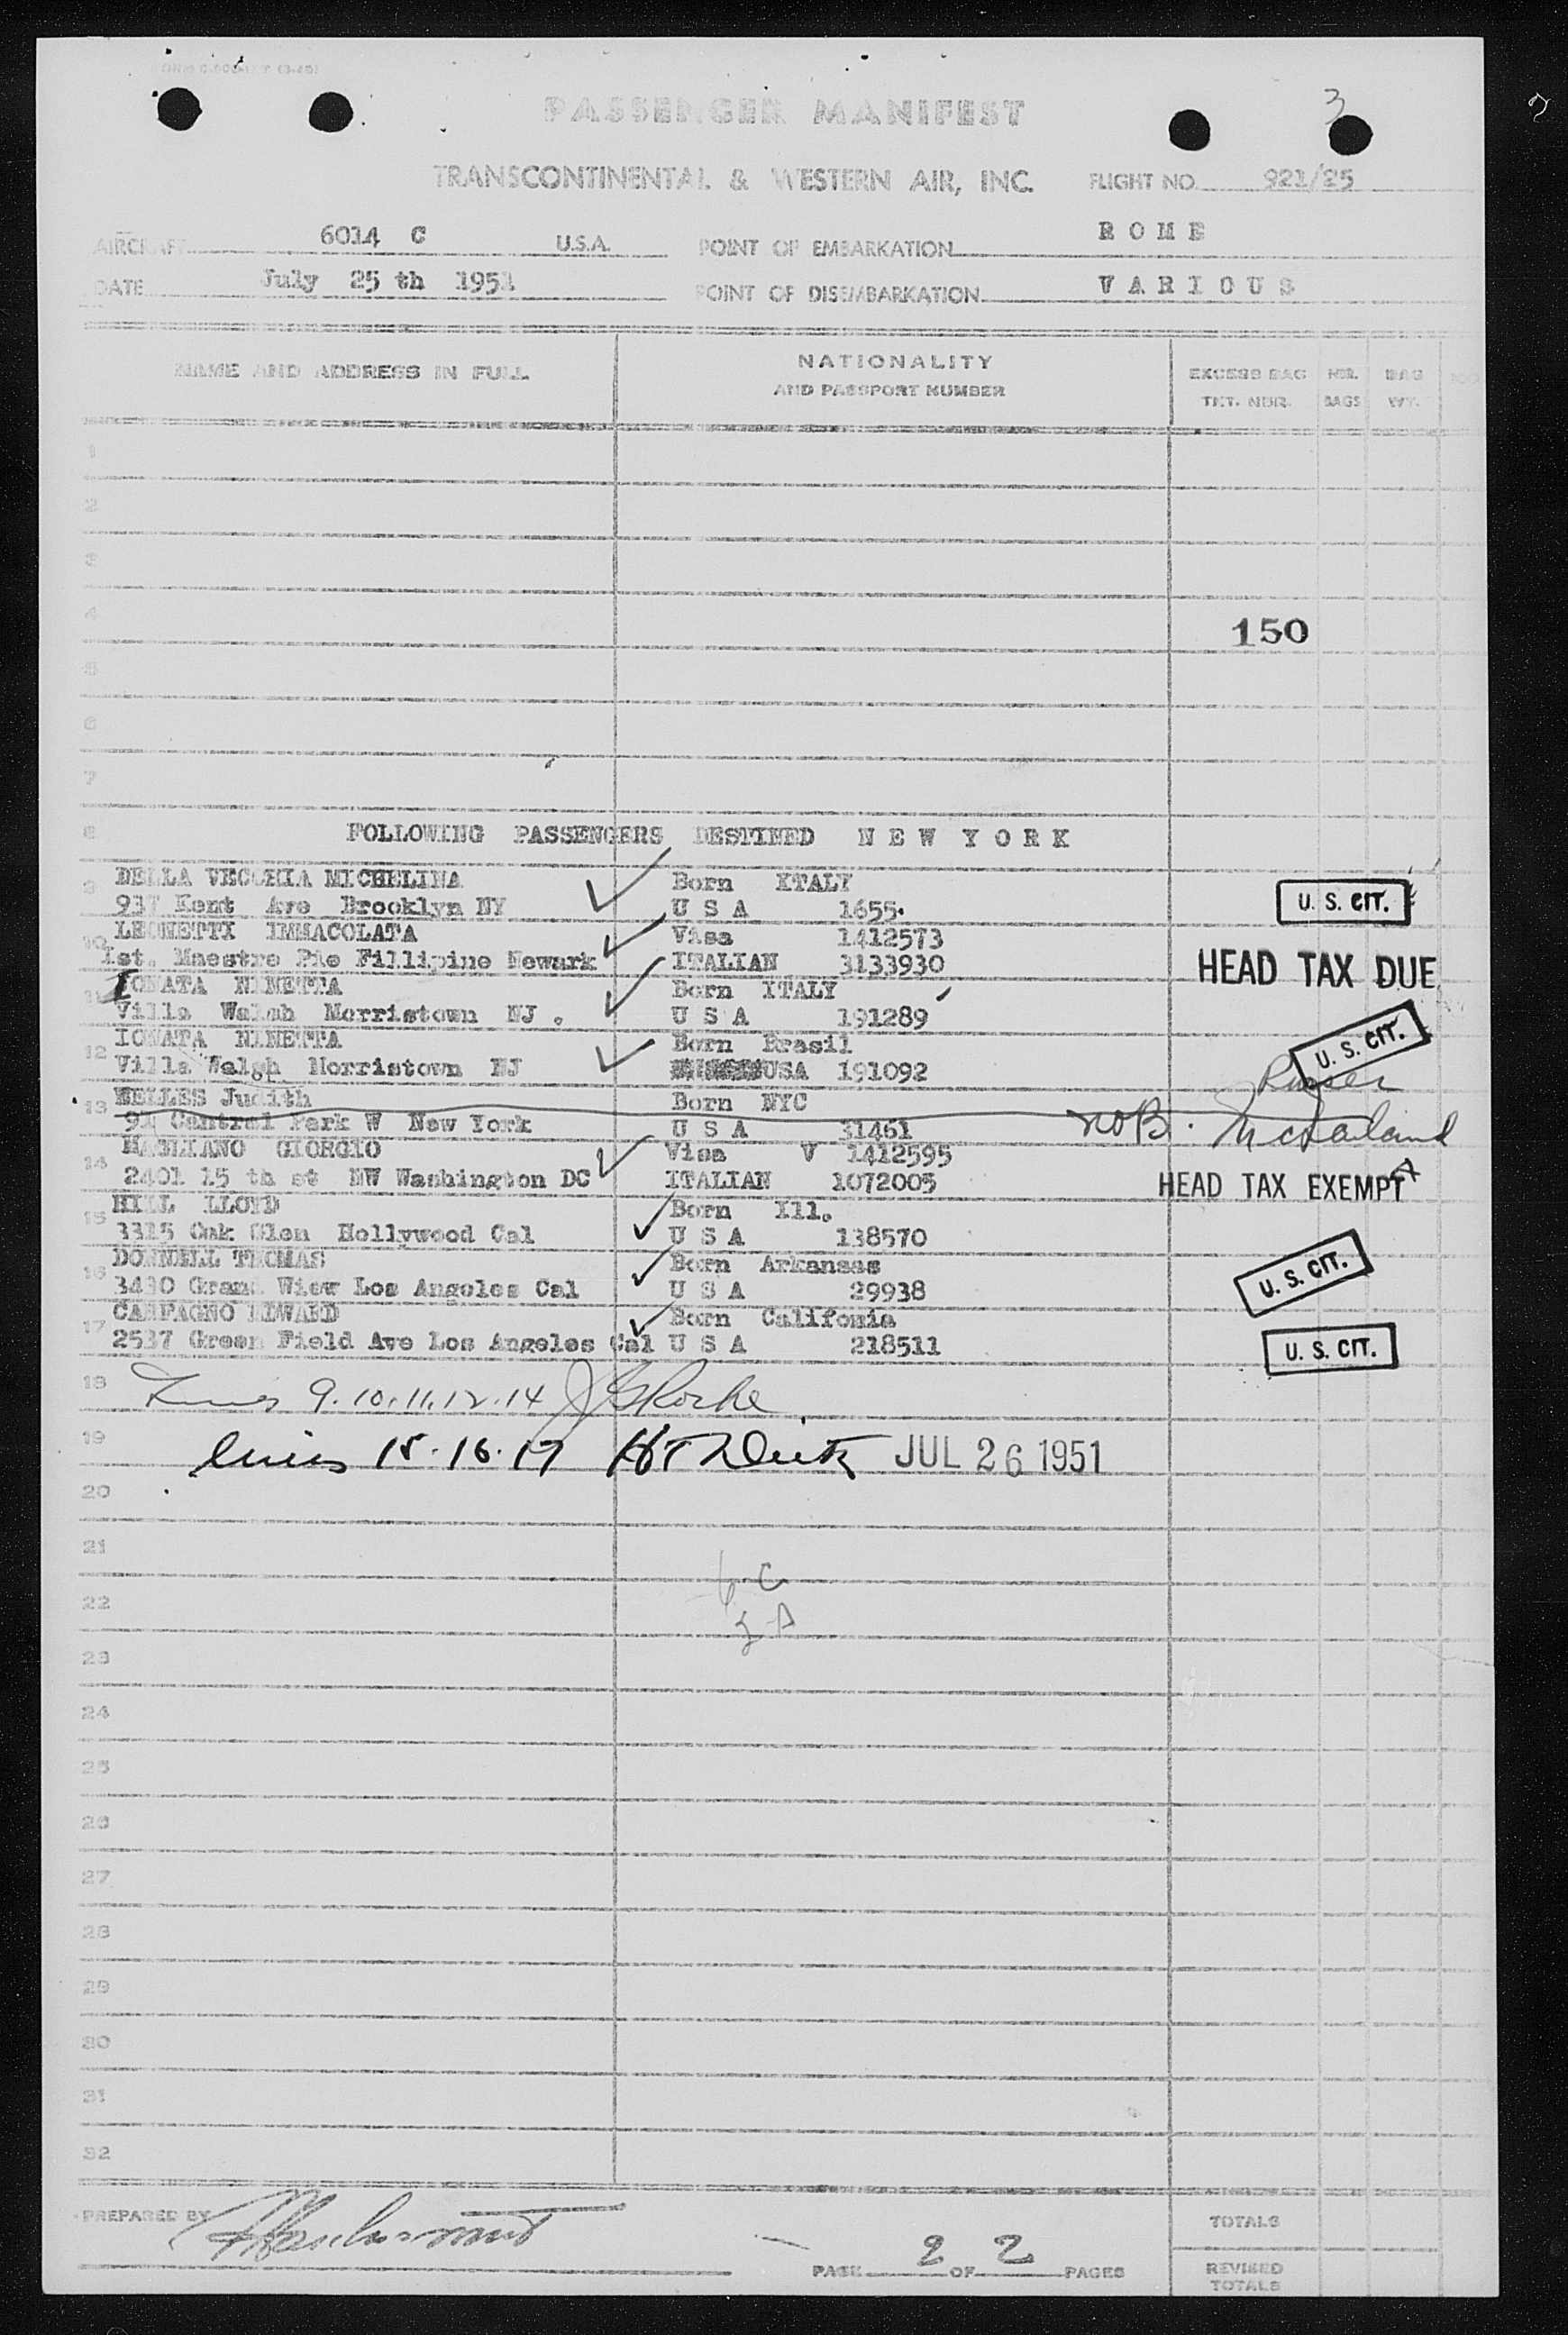 3
PASSENGER MANIFEST
TRANSCONTINENTAL & WESTERN AIR, INC. FLIGHT NO. 921/25
AIRCRAFT 6014 C U.S.A. POINT OF EMBARKATION R O M E
DATE July 25 th 1951 POINT OF DISEMBARKATION V A R I O U S
NAME AND ADDRESS IN FULL
NATIONALITY
AND PASSPORT NUMBER
EXCESS BAG
TKT. NBR.
NBR.
BAGS
BAG
WT.
1
2
3
4
150
5
6
7
8 FOLLOWING PASSENGERS DESTINED N E W Y O R K
9 DELLA VECCHIA MICHELINA Born ITALY
937 Kent Ave Brooklyn NY U S A 1655 U. S. CIT.
10 LEONETTI IMMACOLATA Visa 1412573
Ist. Maestre Pie Fillipine Newark ITALIAN 3133930 HEAD TAX DUE
11 IONATA NINETTA Born ITALY
Villa Walsh Morristown NJ . U S A 191289
12 IONATA NINETTA Born Brasil U. S. CIT.
Villa Walsh Morristown NJ USA 191092
13 Judith Born NYC
Central Park W New York U S A 31461 NOB. McFarland
14 MAGLIANO GIORGIO Visa V 1412595
2401 15 th st NW Washington DC ITALIAN 1072005 HEAD TAX EXEMPT
15 HILL LLOYD Born Ill.
3315 Oak Glen Hollywood Cal U S A 138570
16 DONNELL THOMAS Born Arkansas
3430 Grand View Los Angeles Cal U S A 29938 U. S. CIT.
17 CARFAGNO EDWARD Born Califonia
2537 Green Field Ave Los Angeles Cal U S A 218511 U. S. CIT.
18 Lines 9.10.11.12.14 Roche
19 lines 15.16.17 JUL 26 1951
20
21
6 C
22
2 A
23
24
25
26
27
28
29
30
31
32
PREPARED BY
TOTALS
PAGE 2 OF 2 PAGES
REVISED
TOTALS